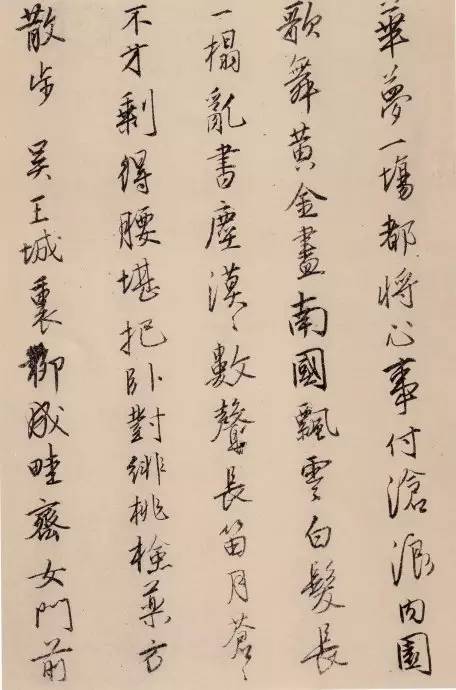 華夢一場都將心事付滄浪內園
歌舞黃金盡南國飄零白髮長
一榻亂書塵漠〻數聲長笛月蒼〻
不才剩得腰堪把臥對緋桃檢藥方
散步 吳王城裏聊成畦齊女門前